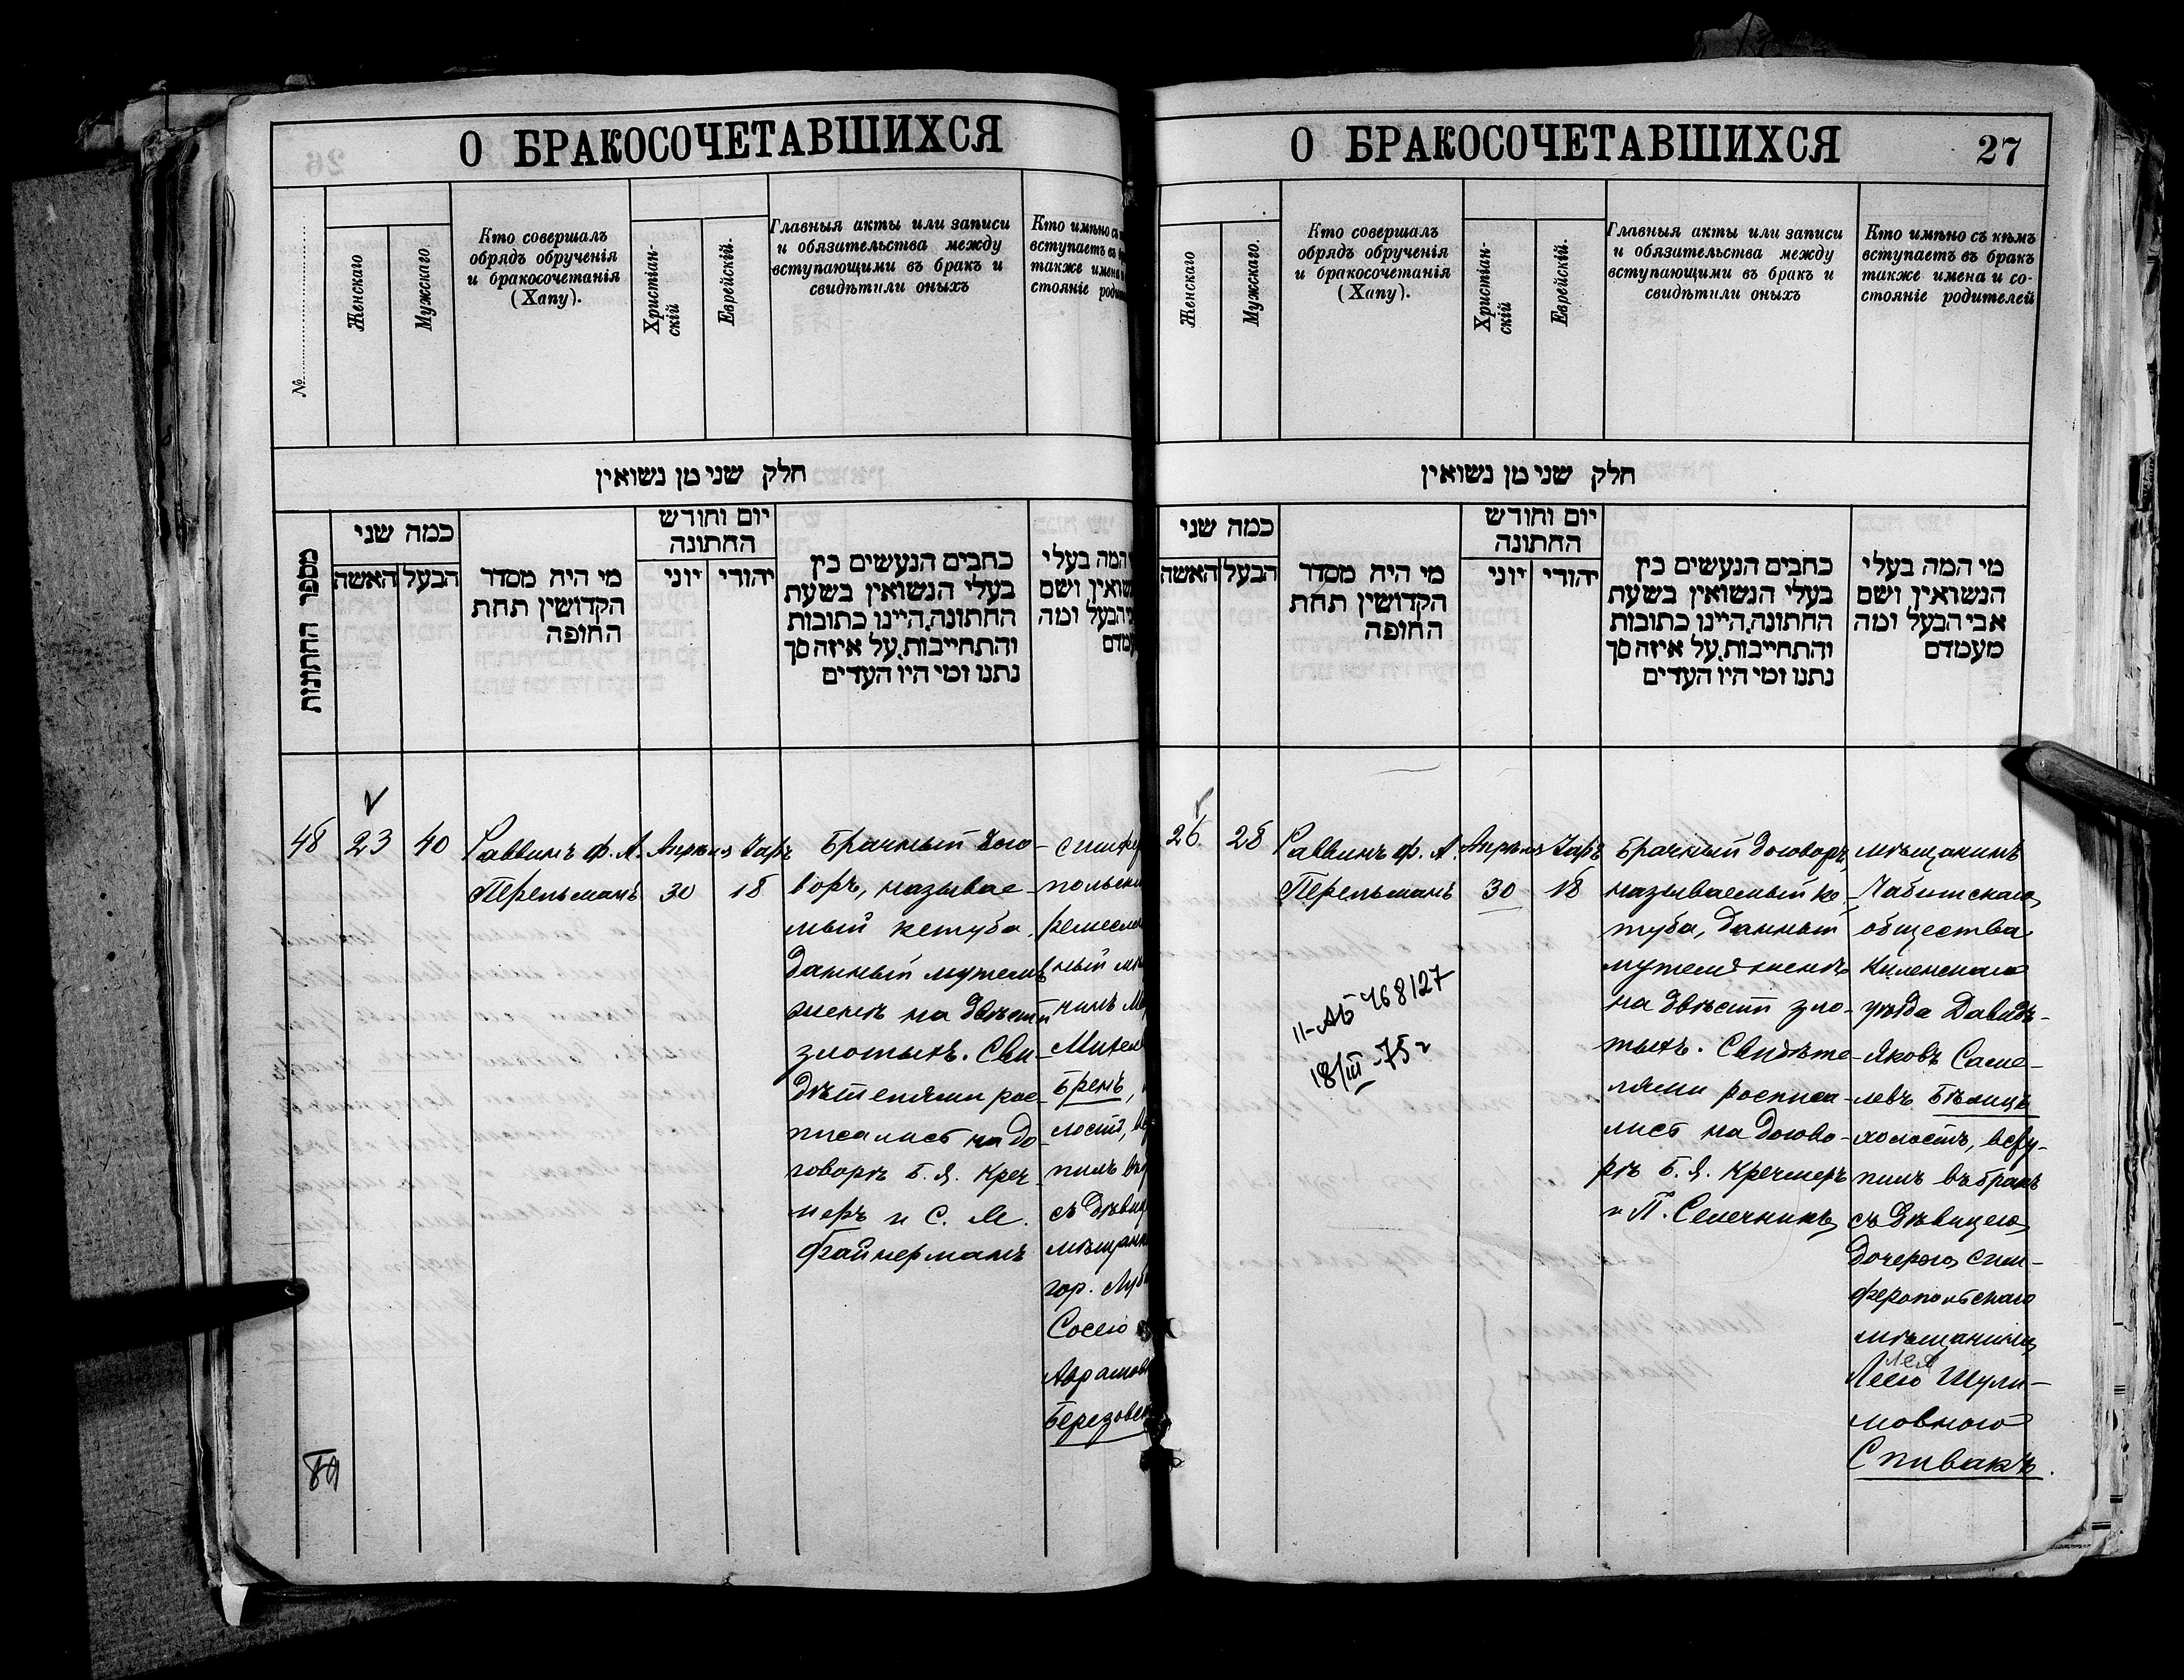 О БРАКОСОЧЕТАВШИХСЯ
№
Женскаго
Мужскаго
Кто совершалъ
обрядъ обрученія
и бракосочетанія
(Хапу).
Христіан-
скій
Еврейскій.
Главныя акты или записи
и обязательства между
вступающими въ бракъ и
свидѣтили оныхъ
Кто имѣно съ
вступаетъ въ
также имена
стояніе
חלק שני מן נשואין
מספר החתונות
כמה שני
האשה
הבעל
מי היה מסדר
הקדושין תחת
החופה
יום וחודש
החתונה
יוני
יהודי
כתבים הנעשים בין
בעלי הנשואין בשעת
החתונה, היינו כתובות
והתחייבות, על איזה סך
נתנו ומי היו העדים
המה בעלי
ושם
הבעל ומה
48
23
40
Раввинъ Ф. А.
Перельманъ
Апрѣля
30
Іаръ
18
Брачный дого-
воръ, называе-
мый кетуба,
данный мужемъ
женѣ на двѣсти
злотыхъ. Сви-
дѣтелями рос-
писались на до-
говорѣ Б. Я. Креч-
меръ и С. М.
Файнерманъ
симфер
польскі
ремеслен
ный
нинъ
Михел
Бренъ,
лостъ,
пилъ въ
съ дѣвиц
мѣщанк
гор.
Сосею
Аврамов
Березовск
89
О БРАКОСОЧЕТАВШИХСЯ
27
Женскаго
Мужскаго
Кто совершалъ
обрядъ обрученія
и бракосочетанія
(Хапу).
Христіан-
скій
Еврейскій.
Главныя акты или записи
и обязательства между
вступающими въ бракъ и
свидѣтили оныхъ
Кто имѣно съ кѣмъ
вступаетъ въ бракъ
также имена и со-
стояніе родителей
חלק שני מן נשואין
כמה שני
האשה
הבעל
מי היה מסדר
הקדושין תחת
החופה
יום וחודש
החתונה
יוני
יהודי
כתבים הנעשים בין
בעלי הנשואין בשעת
החתונה, היינו כתובות
והתחייבות, על איזה סך
נתנו ומי היו העדים
מי המה בעלי
הנשואין ושם
אבי הבעל ומה
מעמדם
26
28
Раввинъ Ф. А.
Перельманъ
II-АБ 468127
18/III-75 г
Апрѣля
30
Іаръ
18
Брачный договоръ,
называемый ке-
туба, данный
мужемъ женѣ
на двѣсти зло-
тыхъ. Свидѣте-
лями росписа-
лись на догово-
рѣ Б. Я. Кречмеръ
и П. Селечникъ
мѣщанинъ
общества
уѣзда Давидъ-
Яковъ Саме-
левъ Бѣлицъ
холостъ, всту-
пилъ въ бракъ
съ дѣвицею
дочерью сим-
феропольскаго
мѣщанина
Лея
Леею Шули-
мовною
Спивакъ.